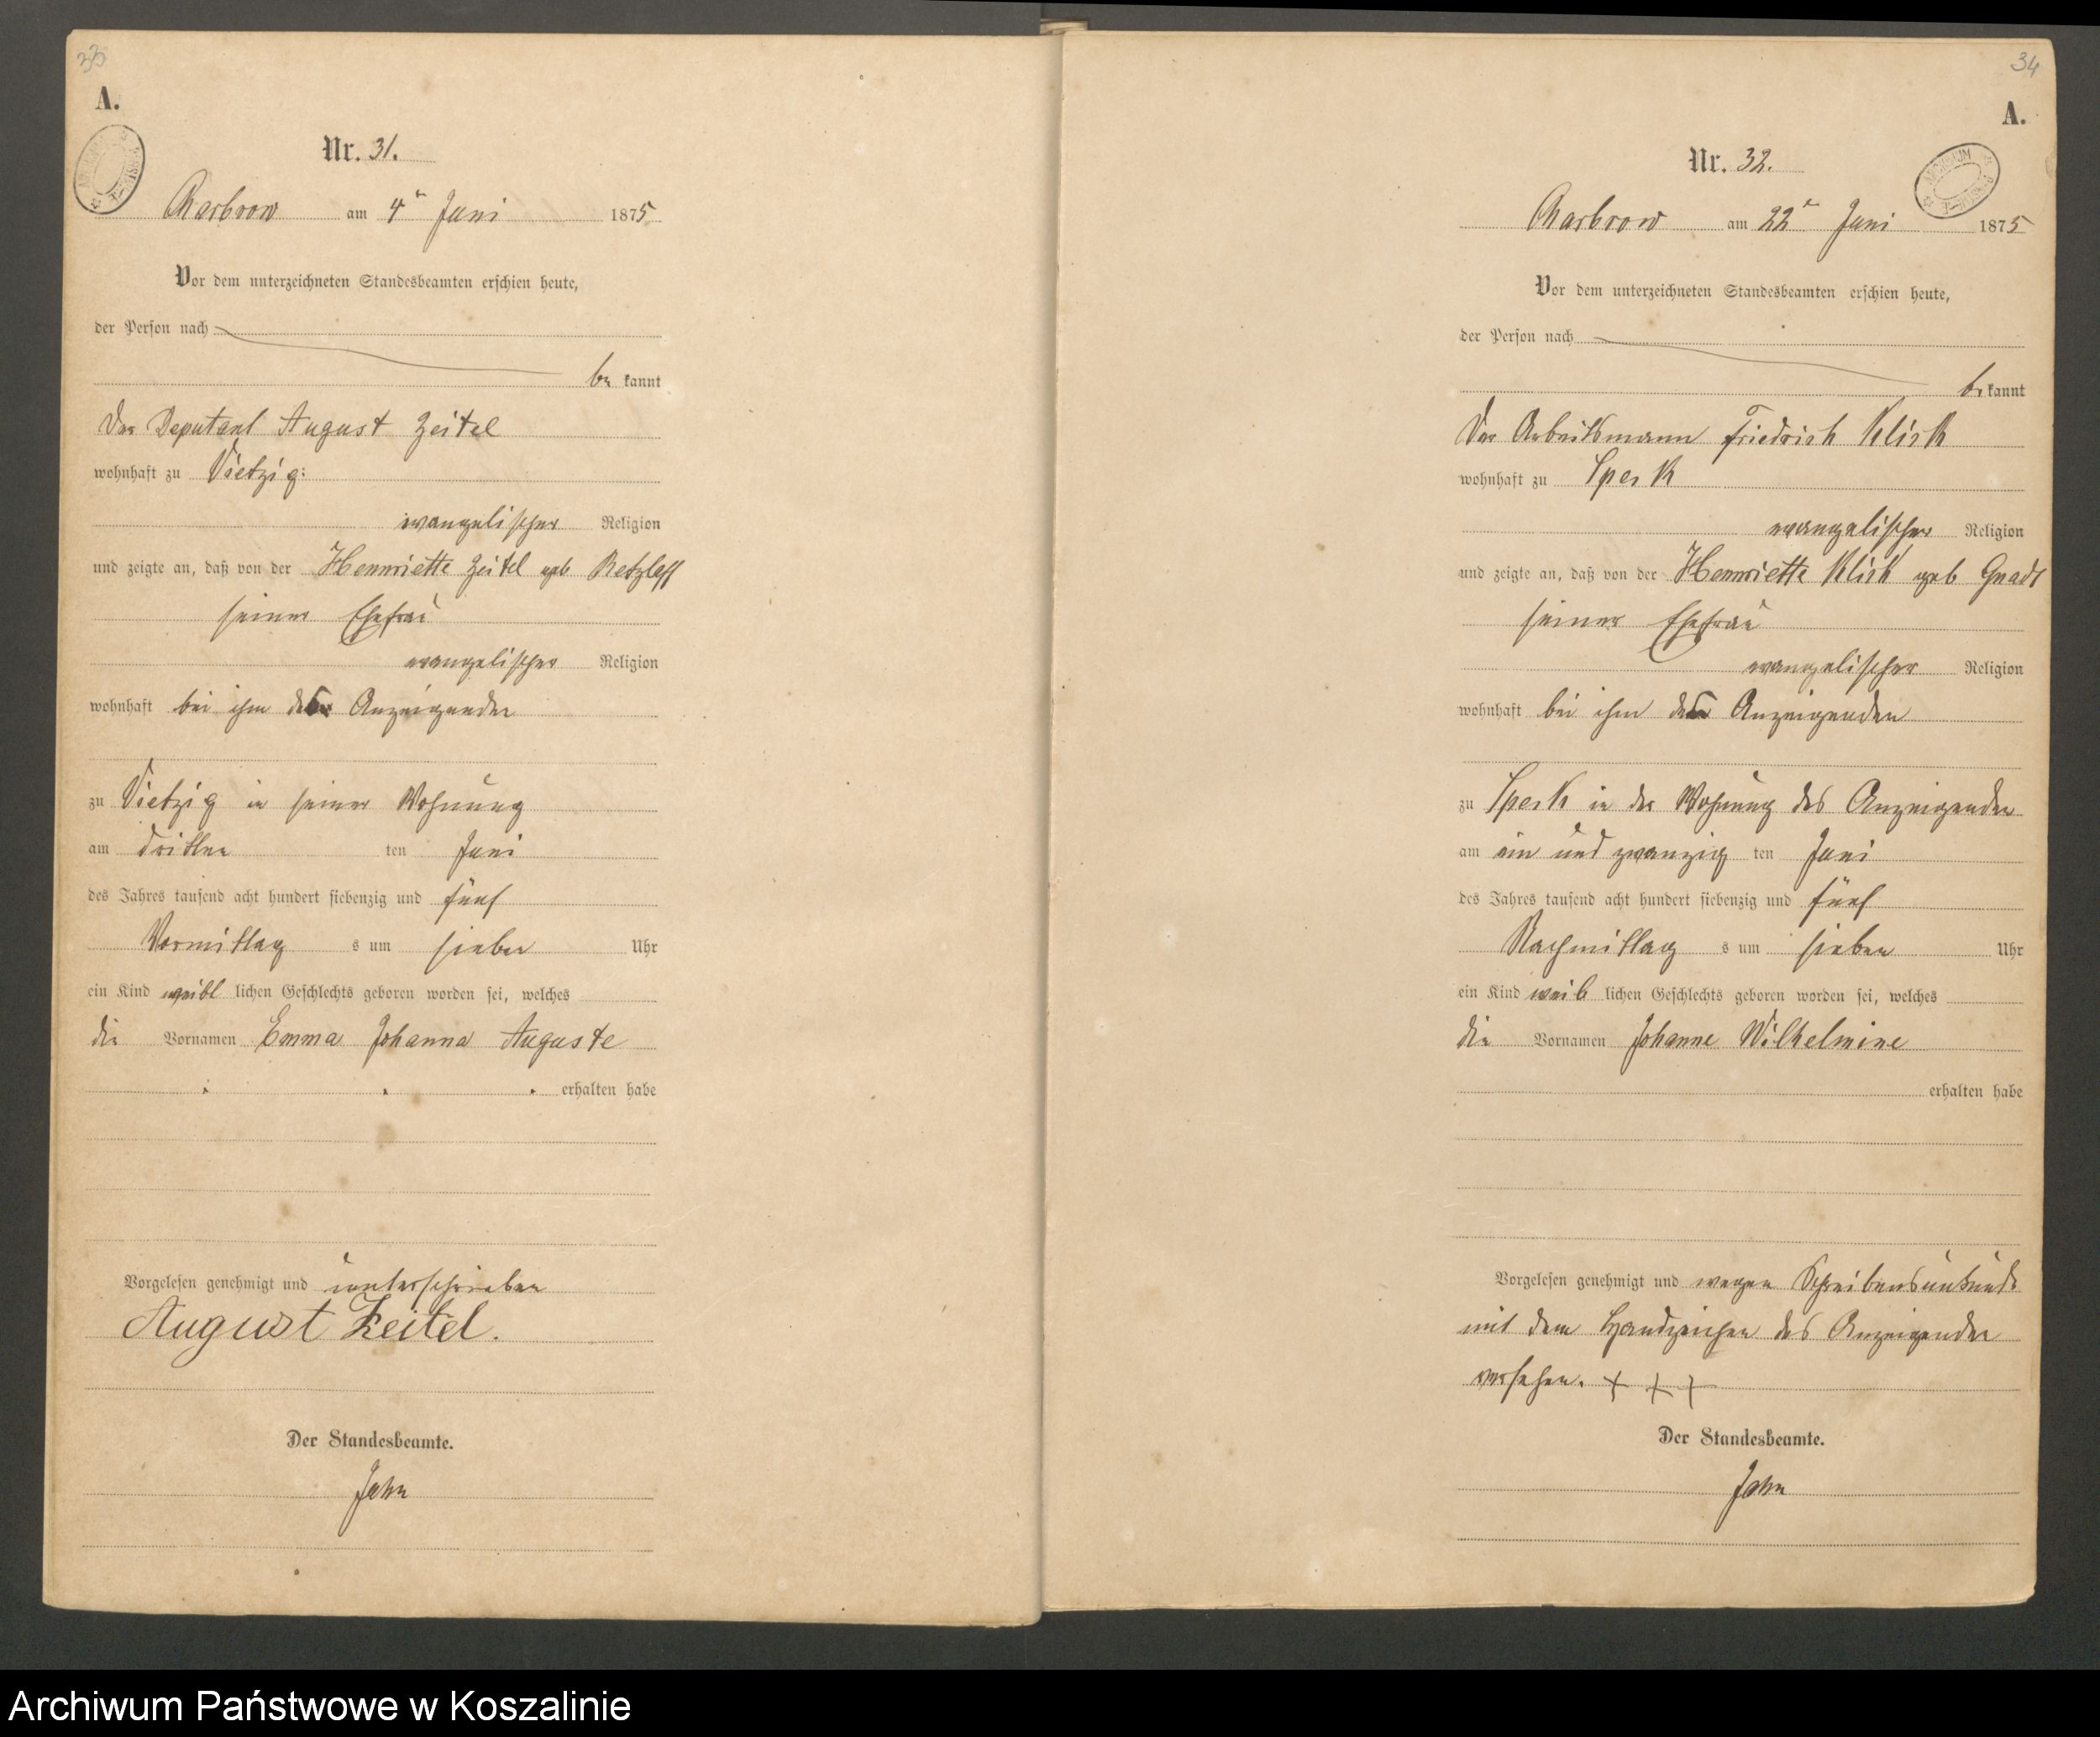 33
A.
Nr. 31.
Charbrow am 4ten Juni 1875
Vor dem unterzeichneten Standesbeamten erschien heute,
der Person nach
be kannt
Der Deputant August Zeitel
wohnhaft zu Vietzig:
evangelischer Religion
und zeigte an, daß von der Henriette Zeitel geb Retzlaff
seiner Ehefrau
evangelischer Religion
wohnhaft bei ihm dem Anzeigenden
zu Vietzig in seiner Wohnung
am dritten ten Juni
des Jahres tausend acht hundert siebenzig und fünf
Vormittag s um sieben Uhr
ein Kind weibl lichen Geschlechts geboren worden sei, welches
die Vornamen Emma Johanna Auguste
erhalten habe
Vorgelesen genehmigt und unterschrieben
August Zeitel.
Der Standesbeamte.
Jahn
34
A.
ARCHIWUM
Nr. 32.
Charbrow am 22ten Juni 1875
Vor dem unterzeichneten Standesbeamten erschien heute,
der Person nach
be kannt
Der Arbeitsmann Friedrich Klick
wohnhaft zu Speck
evangelischer Religion
und zeigte an, daß von der Henriette Klick geb
seiner Ehefrau
evangelischer Religion
wohnhaft bei ihm dem Anzeigenden
zu Speck in der Wohnung des Anzeigenden
am ein und zwanzig ten Juni
des Jahres tausend acht hundert siebenzig und fünf
Nachmittag s um sieben Uhr
ein Kind weib lichen Geschlechts geboren worden sei, welches
die Vornamen Johanne Wilhelmine
erhalten habe
Vorgelesen genehmigt und wegen Schreibensunkunde
mit dem Handzeichen des Anzeigenden
versehen. + + +
Der Standesbeamte.
Jahn
Archiwum Państwowe w Koszalinie